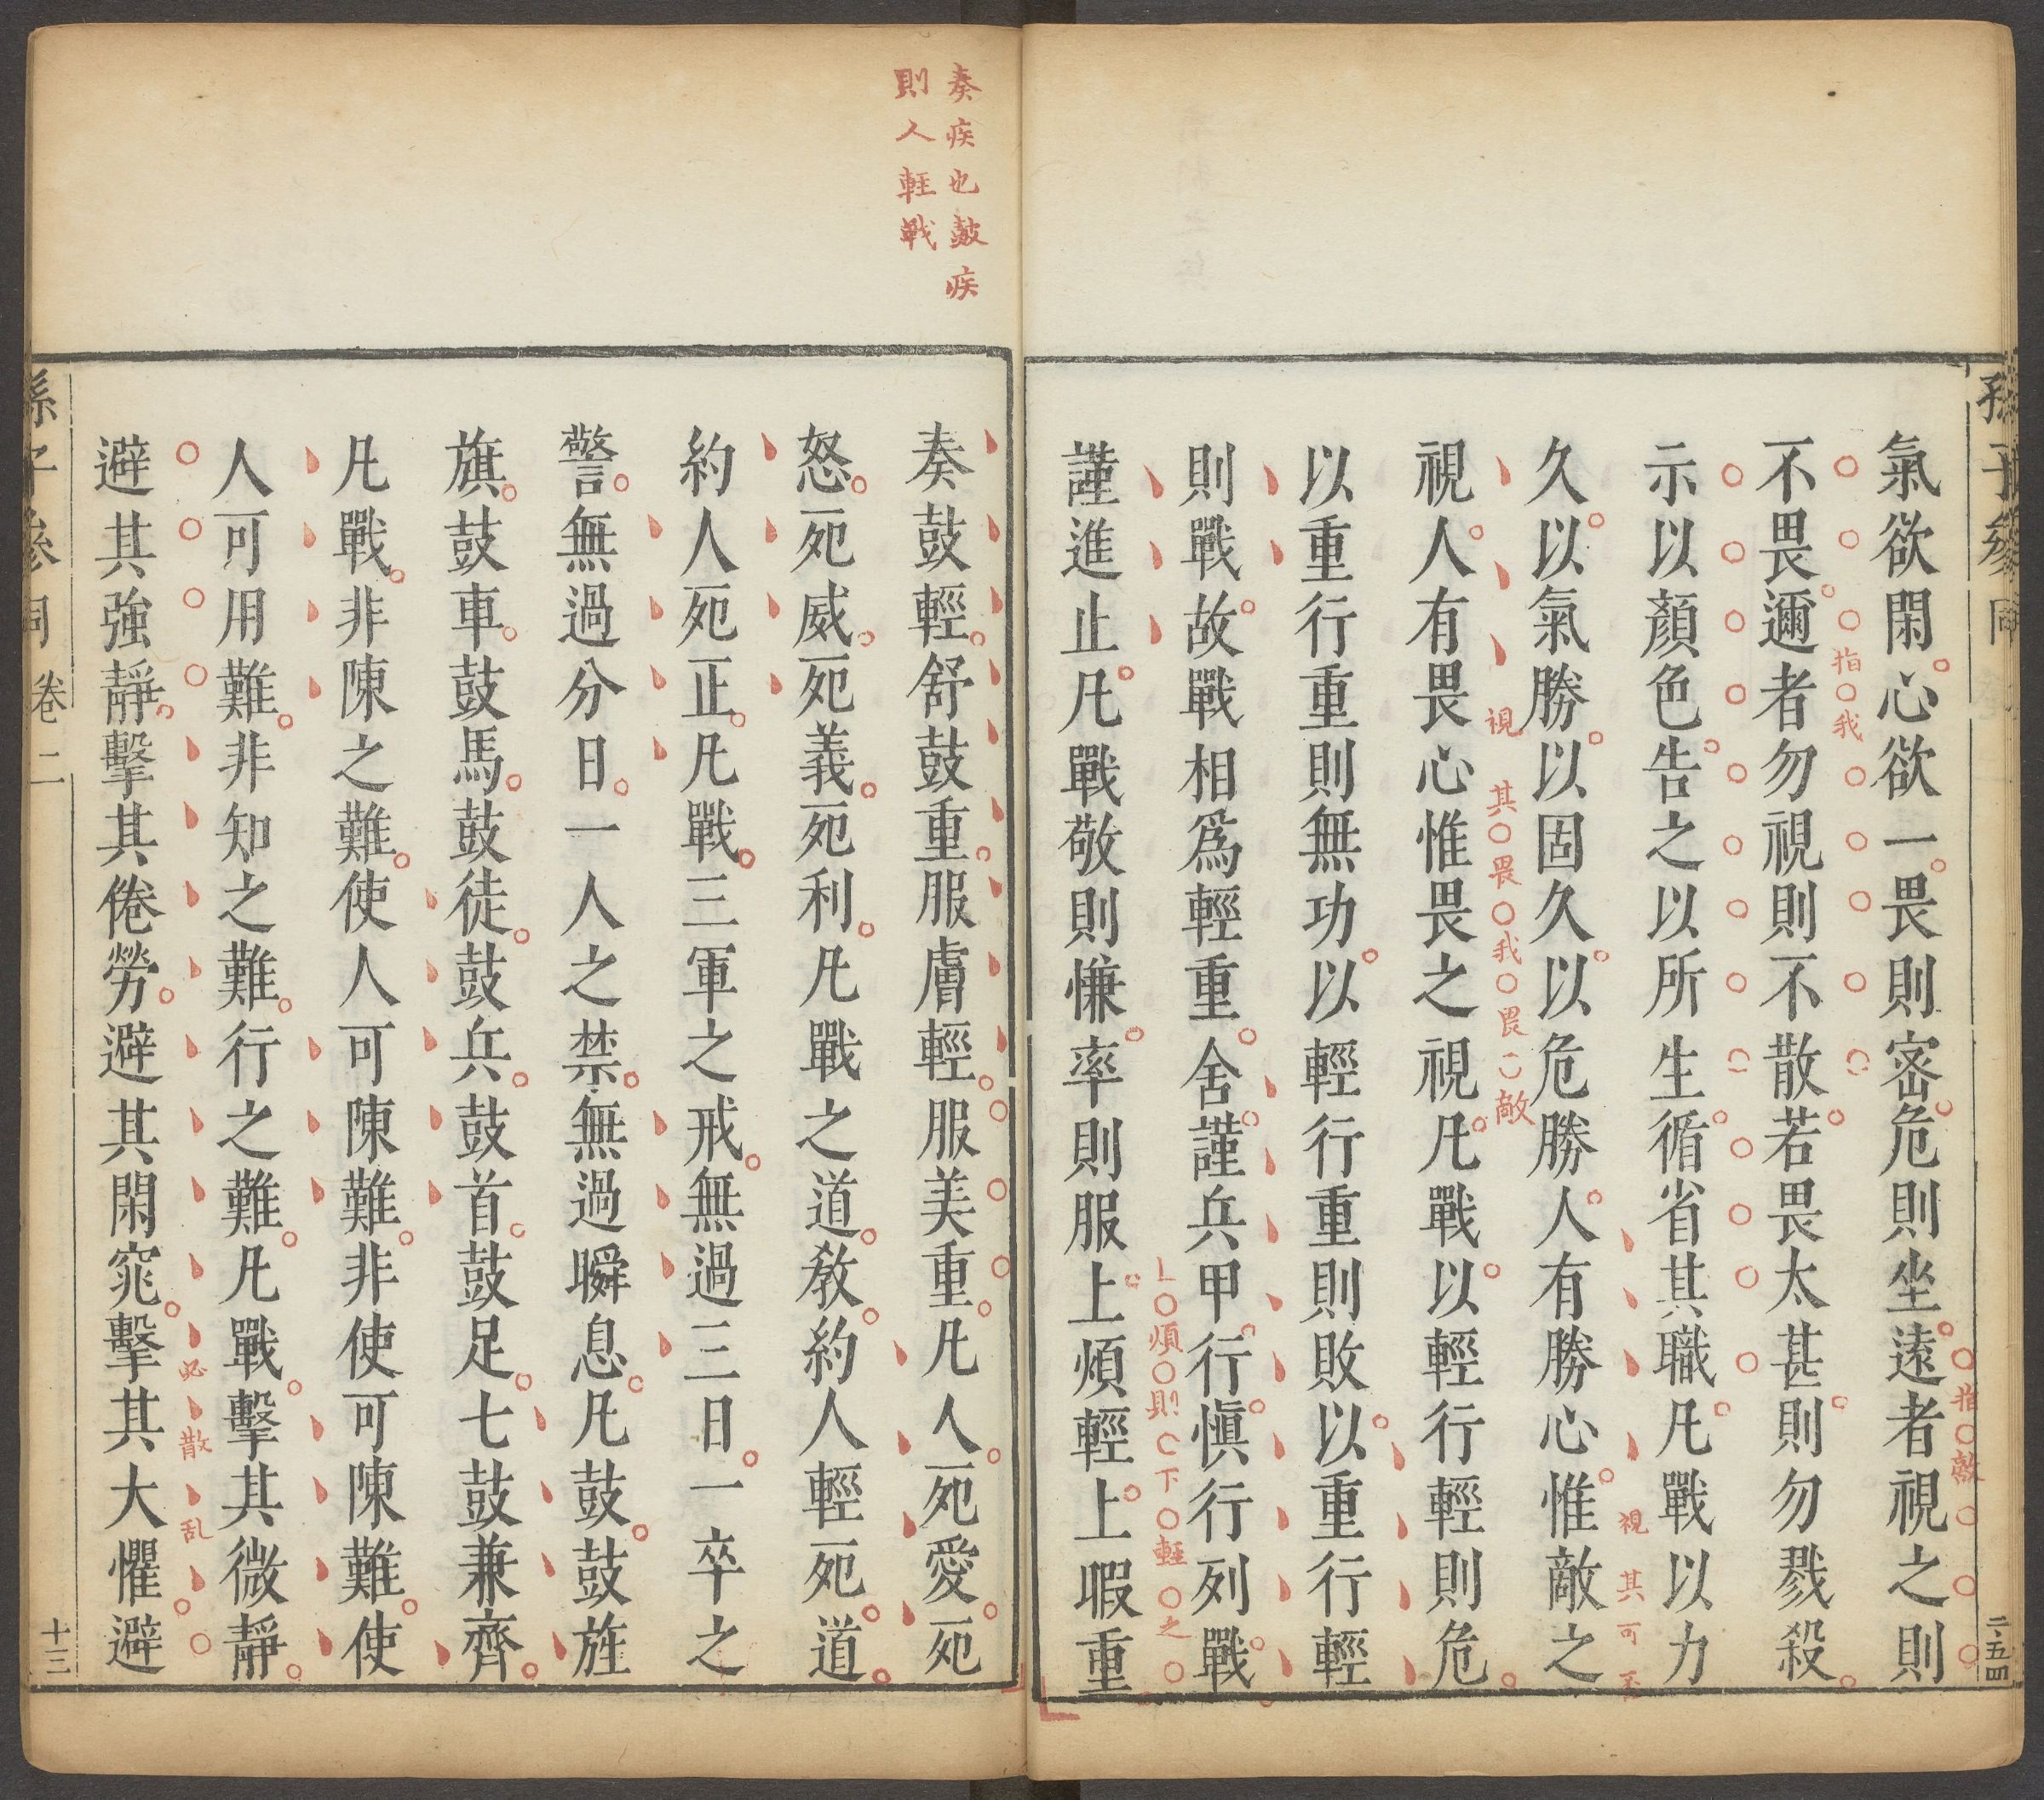 孫子參同
二五四
氣欲閑心欲一畏則密危則坐遠者視之則
指敵
不畏邇者勿視則不散若畏太甚則勿戮殺
指我
示以顏色告之以所生循省其職凡戰以力
久以氣勝以固久以危勝人有勝心惟敵之
視其可至
視人有畏心惟畏之視凡戰以輕行輕則危
視其畏我畏敵
以重行重則無功以輕行重則敗以重行輕
則戰故戰相爲輕重舍謹兵甲行慎行列戰
謹進止凡戰敬則慊率則服上煩輕上暇重
上煩則下輕之
奏疾也皷疾
則人軽戦
奏鼓輕舒鼓重服膚輕服美重凡人死愛死
怒死威死義死利凡戰之道教約人輕死道
約人死正凡戰三軍之戒無過三日一卒之
警無過分日一人之禁無過瞬息凡鼓鼓旌
旗鼓車鼓馬鼓徒鼓兵鼓首鼓足七鼓兼齊
凡戰非陳之難使人可陳難非使可陳難使
人可用難非知之難行之難凡戰擊其微靜
避其強靜擊其倦勞避其閑窕擊其大懼避
必散乱
孫子參同 卷二
十三